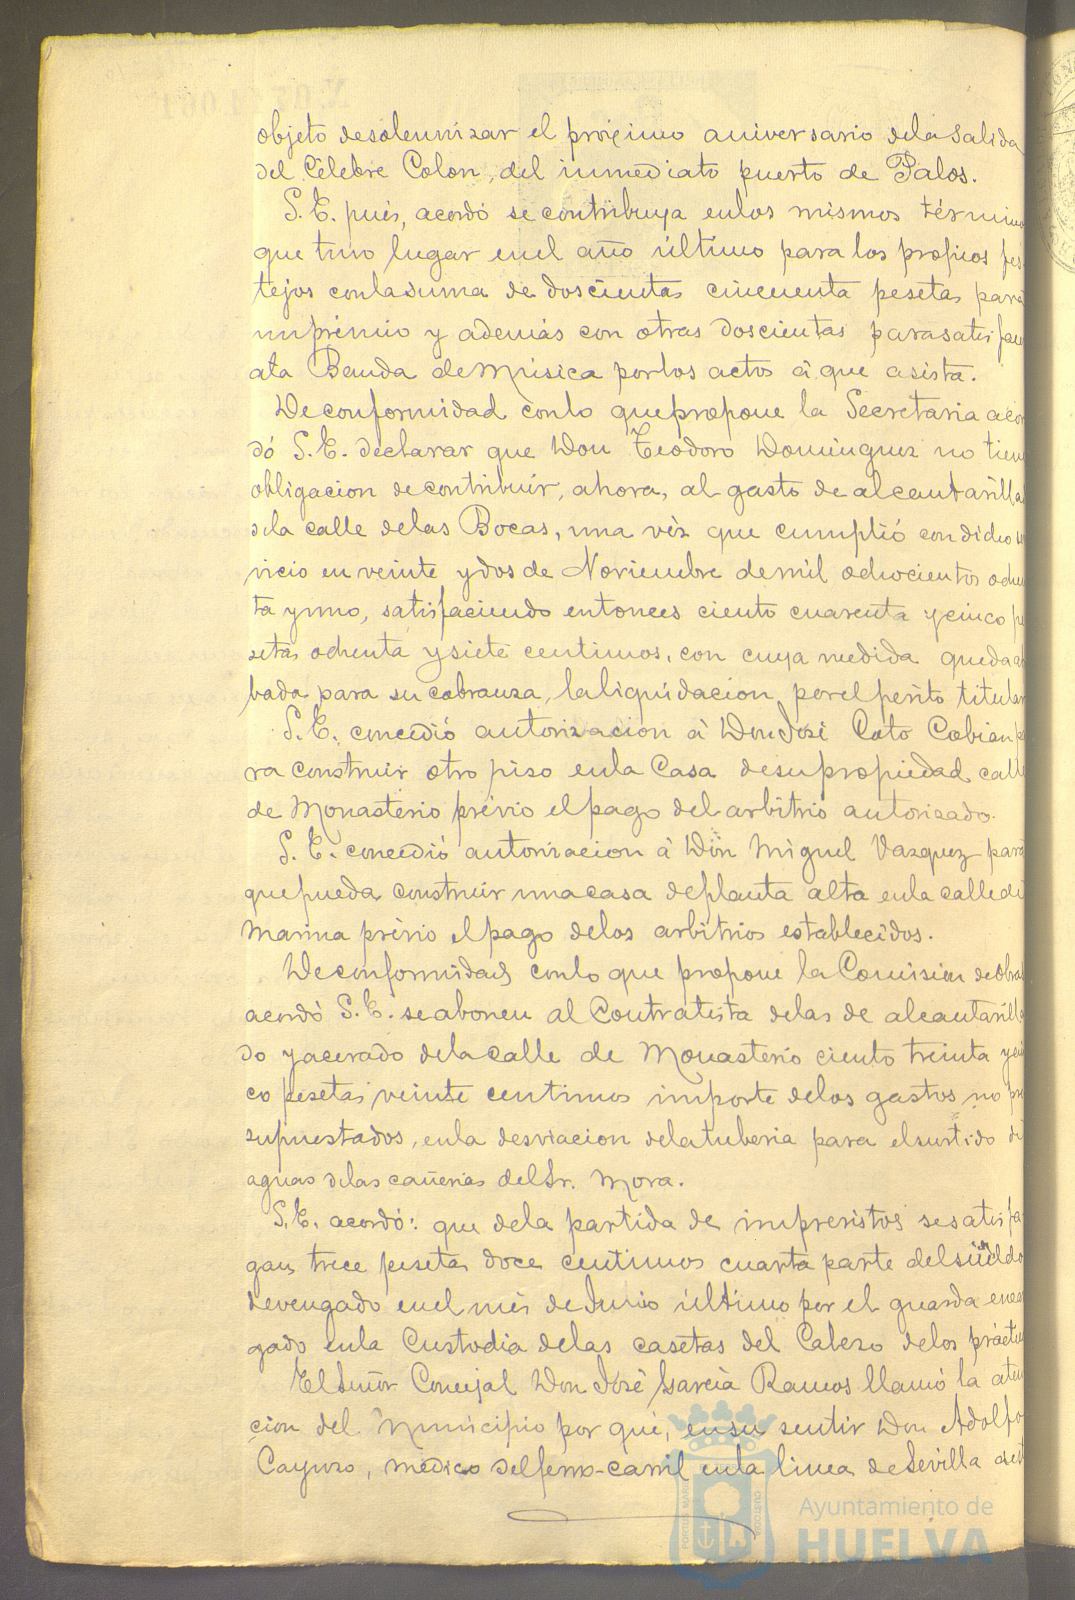 objeto desolemnizar el próximo aniversario dela Salida
del Célebre Colon, del inmediato puerto de Palos.
S. E. pués, acordó se contribuya enlos mismos término
que tuvo lugar enel año último para los propios fes
tejos conlasuma de doscientas cincuenta pesetas para
unprémio y además con otras doscientas parasatisfacer
ala Banda deMúsica porlos actos á que asista.
Deconformidad conlo quepropone la Secretaria acor
dó S. E. declarar que Don Teodoro Dominguez no tiene
obligacion decontribuir, ahora, al gasto de alcantarilla
dela calle delas Bocas, una véz que cumplió con dicho ser
vicio en veinte ydos de Noviembre demil ochocientos ochen
ta yuno, satisfaciendo entonces ciento cuarenta ycinco pe
setas ochenta ysiete centimos, con cuya medida queda
bada para su cobranza, laliquidacion porel perito titular
S. E. concedió autorizacion á Don José Coto Cobian pa
ra construir otro piso enla Casa desupropiedad calle
de Monasterio prévio elpago del arbitrio autorizado.
S. E. concedió autorizacion á Don Miguel Vazquez para
quepueda construir unacasa deplanta alta enla callede
Marina prévio elpago delos arbitrios establecidos.
Deconformidad conlo que propone la Comisión deobras
acordó S. E. seabonen al Contratista delas de alcantarilla
do yacerado delacalle de Monasterio ciento treinta ycin
co pesetas veinte centimos importe delos gastos no pre
supuestados, enla desviacion delatuberia para elsurtido de
aguas delas cañerias delSr. Mora.
S. E. acordó: que dela partida de imprevistos sesatisfa
gan trece pesetas doce centimos cuarta parte delsueldo
devengado enel més deJunio último por el guarda encar
gado enla Custodia delas casetas del Cabezo delos
ElSeñor Concejal Don José Garcia Ramos llamó la aten
cion del Municipio por qué, ensu sentir Don Adolfo
Cayuso, médico delferro-carril enla linea deSevilla
PORTUS MARIS
CUSTODIA
Ayuntamiento de
HUELVA